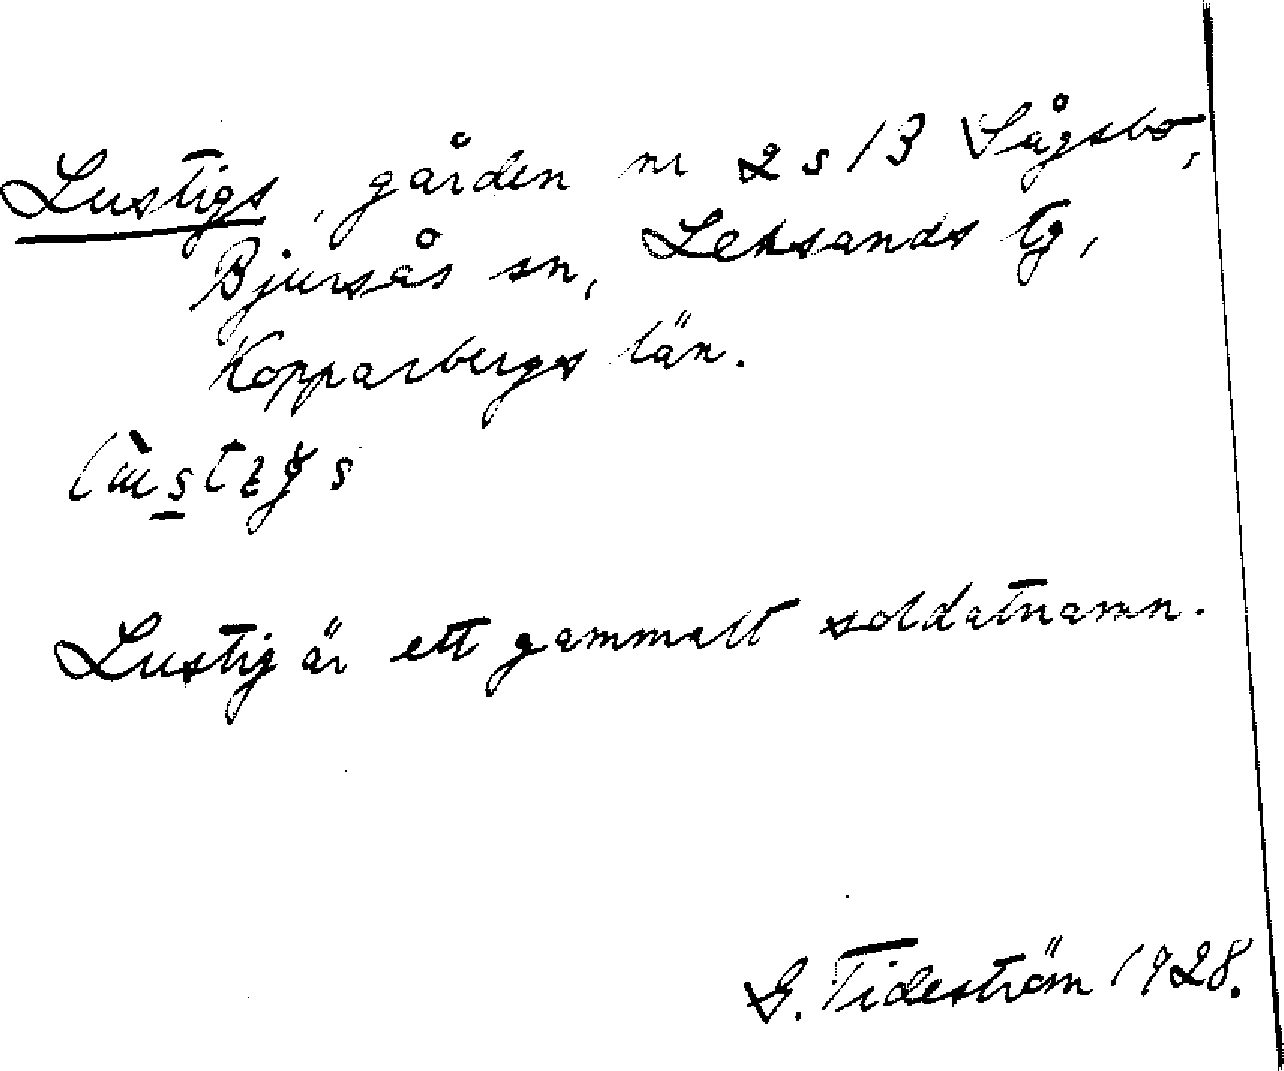 Lustigs, gården nr 2 s 13 Sågsbo,
Bjursås sn, Leksands tg,
Kopparbergs län.
Lustig är ett gammalt soldatnamn.
G. Tideström 1928.